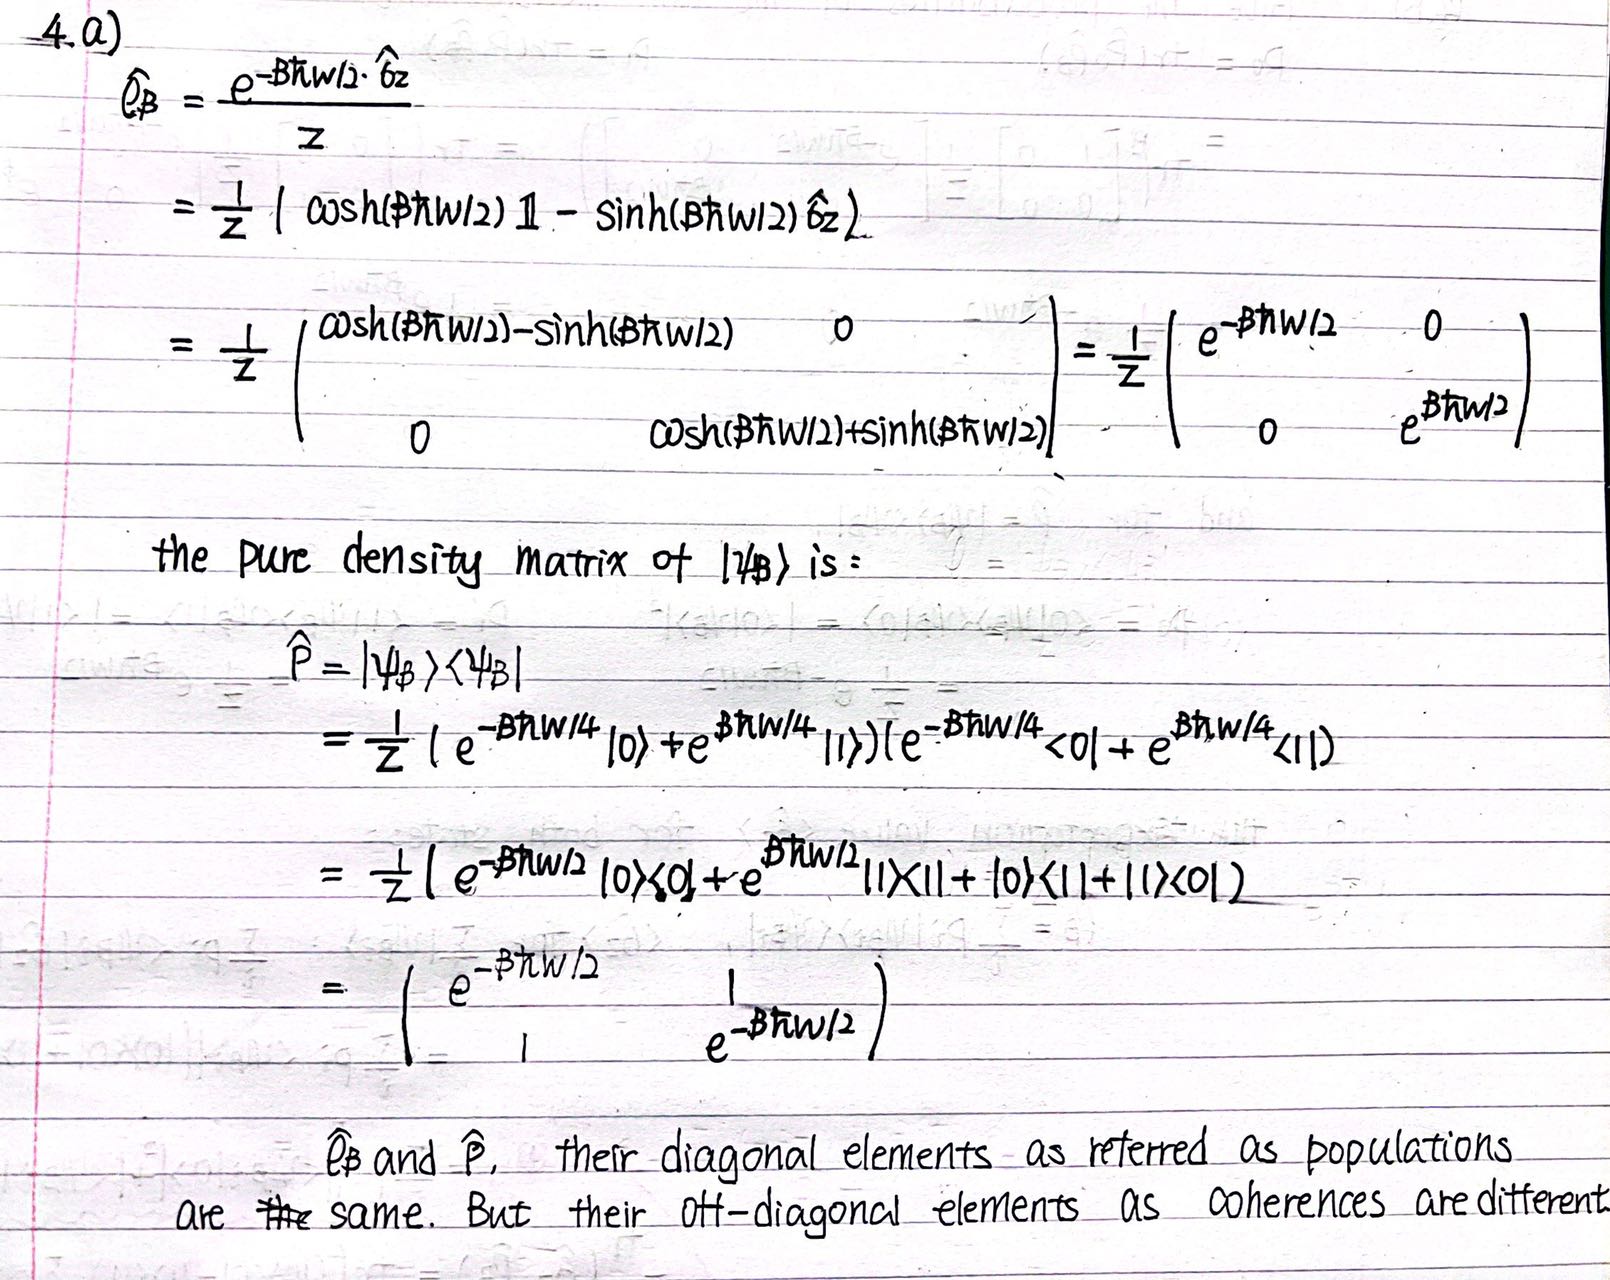 4.a)
ρ̂β = e^(-βħω/2·σ̂z) / Z
= 1/Z ( cosh(βħω/2) 𝟙 - sinh(βħω/2) σ̂z )
= 1/Z ( cosh(βħω/2)-sinh(βħω/2) 0 ; 0 cosh(βħω/2)+sinh(βħω/2) ) = 1/Z ( e^(-βħω/2) 0 ; 0 e^(βħω/2) )
the pure density matrix of |ψβ⟩ is:
P̂ = |ψβ⟩⟨ψβ|
= 1/Z ( e^(-βħω/4) |0⟩ + e^(βħω/4) |1⟩)(e^(-βħω/4) <0| + e^(βħω/4) <1|)
= 1/Z ( e^(-βħω/2) |0⟩<0| + e^(βħω/2) |1⟩<1| + |0⟩<1| + |1⟩<0| )
= ( e^(-βħω/2) 1 ; 1 e^(-βħω/2) )
ρ̂β and P̂, their diagonal elements as referred as populations
are the same. But their off-diagonal elements as coherences are different